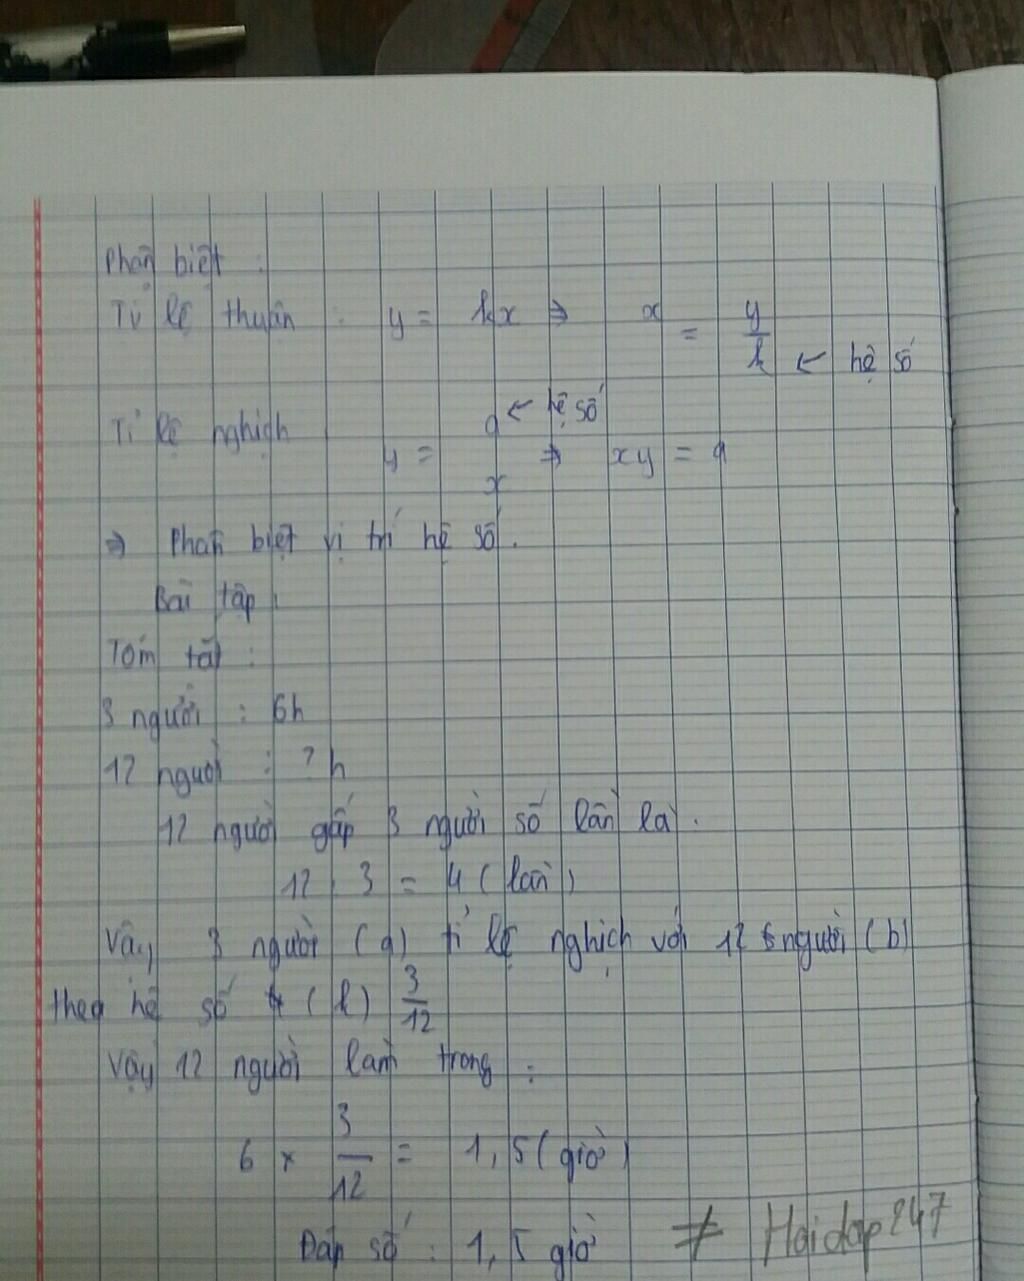 Phân biệt :
Tỉ lệ thuận : y = kx ⇒ x = y/k ← hệ số
Tỉ lệ nghịch y = a/x ← hệ số ⇒ xy = a
⇒ Phân biệt vị trí hệ số.
Bài tập :
Tóm tắt :
3 người : 6h
12 người : ? h
12 người gấp 3 người số lần là :
12 : 3 = 4 (lần)
Vậy 3 người (a) tỉ lệ nghịch với 12 người (b)
theo hệ số (k) 3/12
Vậy 12 người làm trong :
6 × 3/12 = 1,5 (giờ)
Đáp số : 1,5 giờ
≠ Hoidap247